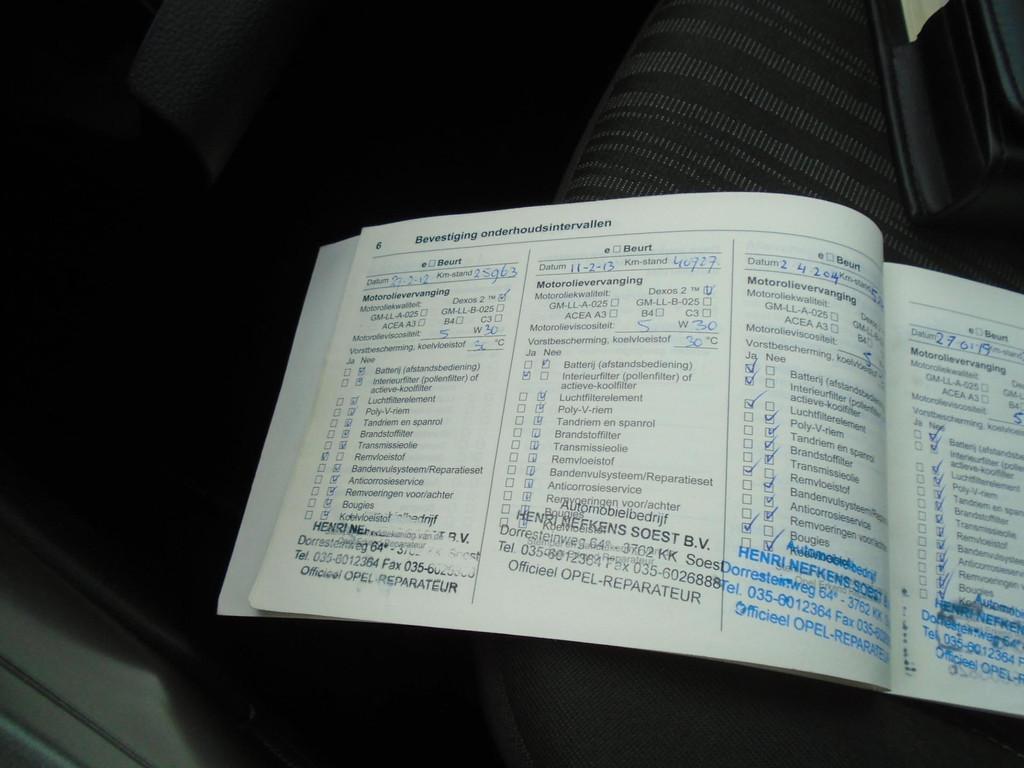 6 Bevestiging onderhoudsintervallen
e Beurt
Datum 2-12 Km-stand 25963
Motorolievervanging
Motoroliekwaliteit: Dexos 2 ™
GM-LL-A-025 GM-LL-B-025
ACEA A3 B4 C3
Motorolieviscositeit: 5 W 30
Vorstbescherming, koelvloeistof °C
Ja Nee
Batterij (afstandsbediening)
Interieurfilter (pollenfilter) of
actieve-koolfilter
Luchtfilterelement
Poly-V-riem
Tandriem en spanrol
Brandstoffilter
Transmissieolie
Remvloeistof
Bandenvulsysteem/Reparatieset
Anticorrosieservice
Remvoeringen voor/achter
Bougies
Koelvloeistof
HENRI B.V.
Dorresteinweg 64ᵃ
Tel. 035-6012364 Fax 035-
Officieel OPEL-REPARATEUR
e Beurt
Datum 11-2-13 Km-stand 40727
Motorolievervanging
Motoroliekwaliteit: Dexos 2 ™
GM-LL-A-025 GM-LL-B-025
ACEA A3 B4 C3
Motorolieviscositeit: 5 W 30
Vorstbescherming, koelvloeistof 30 °C
Ja Nee
Batterij (afstandsbediening)
Interieurfilter (pollenfilter) of
actieve-koolfilter
Luchtfilterelement
Poly-V-riem
Tandriem en spanrol
Brandstoffilter
Transmissieolie
Remvloeistof
Bandenvulsysteem/Reparatieset
Anticorrosieservice
Remvoeringen voor/achter
Bougies
Automobielbedrijf
HENRI NEFKENS SOEST B.V.
Dorresteinweg 64ᵃ - 3762 KK Soest
Tel. 035-6012364 Fax 035-6026888
Officieel OPEL-REPARATEUR
e Beurt
Datum 2 4 2014 Km-stand
Motorolievervanging
Motoroliekwaliteit:
GM-LL-A-025
ACEA A3
Motorolieviscositeit:
Vorstbescherming, koelvloeistof
Ja Nee
Batterij (afstandsbed
Interieurfilter (pollenf
actieve-koolfilter
Luchtfilterelement
Poly-V-riem
Tandriem en spanrol
Brandstoffilter
Transmissieolie
Remvloeistof
Bandenvulsysteem/Repa
Anticorrosieservice
Remvoeringen voor/achte
Bougies
HENRI NEFKENS SOEST
Dorresteinweg 64ᵃ - 3762 KK
Tel. 035-6012364 Fax 035-
Officieel OPEL-REPARATE
e Beurt
Datum
Motorolievervanging
Motoroliekwaliteit:
GM-LL-A-025
ACEA A3 B4
Motorolieviscositeit: 5
Vorstbescherming, koelvloeistof
Ja Nee
Batterij (afstandsbedien
Interieurfilter (pollenfilter
actieve-koolfilter
Luchtfilterelement
Poly-V-riem
Tandriem en span
Brandstoffilter
Transmissieolie
Remvloeistof
Bandenvulsysteem
Anticorrosieservice
Remvoeringen voor
Bougies
HENRI NEFKEN
Dorresteinweg 64ᵃ
Tel. 035-6012364
Officieel OPEL-R